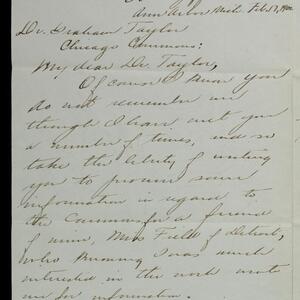 Ann Arbor Mich. Feb.
Dr. Graham Taylor
Chicago Commons:
My dear Dr. Taylor,
Of course I know you
do not remember me
though I have met you
a number of times, and so
take the liberty of writing
you to procure some
information in regard to
the Commons for a friend
of mine, Miss Field of Detroit,
who knowing I was much
interested in the work wrote
me for information.